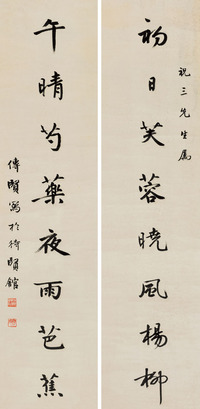 初日芙蓉曉風楊柳
祝三先生屬
午晴芍藥夜雨芭蕉
傅賢寫於待賢館